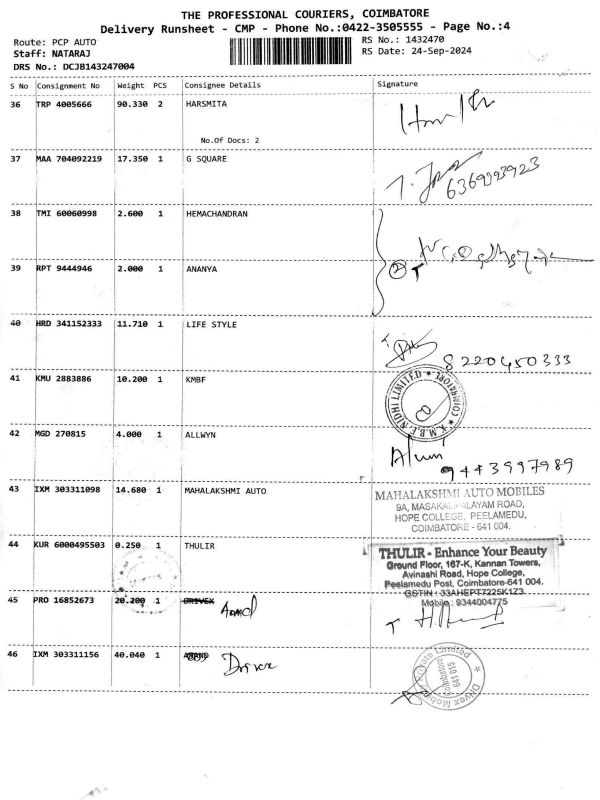 THE PROFESSIONAL COURIERS, COIMBATORE
Delivery Runsheet - CMP - Phone No.:0422-3505555 - Page No.:4
Route: PCP AUTO
Staff: NATARAJ
DRS No.: DCJB143247004
RS No.: 1432470
RS Date: 24-Sep-2024
S No Consignment No Weight PCS Consignee Details Signature
36 TRP 4005666 90.330 2 HARSMITA
No.Of Docs: 2
37 MAA 704092219 17.350 1 G SQUARE
6369993923
38 TMI 60060998 2.600 1 HEMACHANDRAN
39 RPT 9444946 2.000 1 ANANYA
2
40 HRD 341152333 11.710 1 LIFE STYLE
8220450333
41 KMU 2883886 10.200 1 KMBF
K.M.B.F. NIDHI LIMITED * COIMBATORE
42 MGD 270815 4.000 1 ALLWYN
9443997989
43 IXM 303311098 14.680 1 MAHALAKSHMI AUTO
MAHALAKSHMI AUTO MOBILES
9A, MASAKALIPALAYAM ROAD,
HOPE COLLEGE, PEELAMEDU,
COIMBATORE - 641 004.
44 KUR 6000495503 0.250 1 THULIR
THULIR - Enhance Your Beauty
Ground Floor, 167-K, Kannan Towers,
Avinashi Road, Hope College,
Peelamedu Post, Coimbatore-641 004.
GSTIN : 33AHEPT7225K1Z3
Mobile : 9344004775
45 PRO 16852673 20.200 1 DRIVEX Anand
46 IXM 303311156 40.040 1 Drivex
Drivex Mobility Private Limited
Coimbatore
641 015